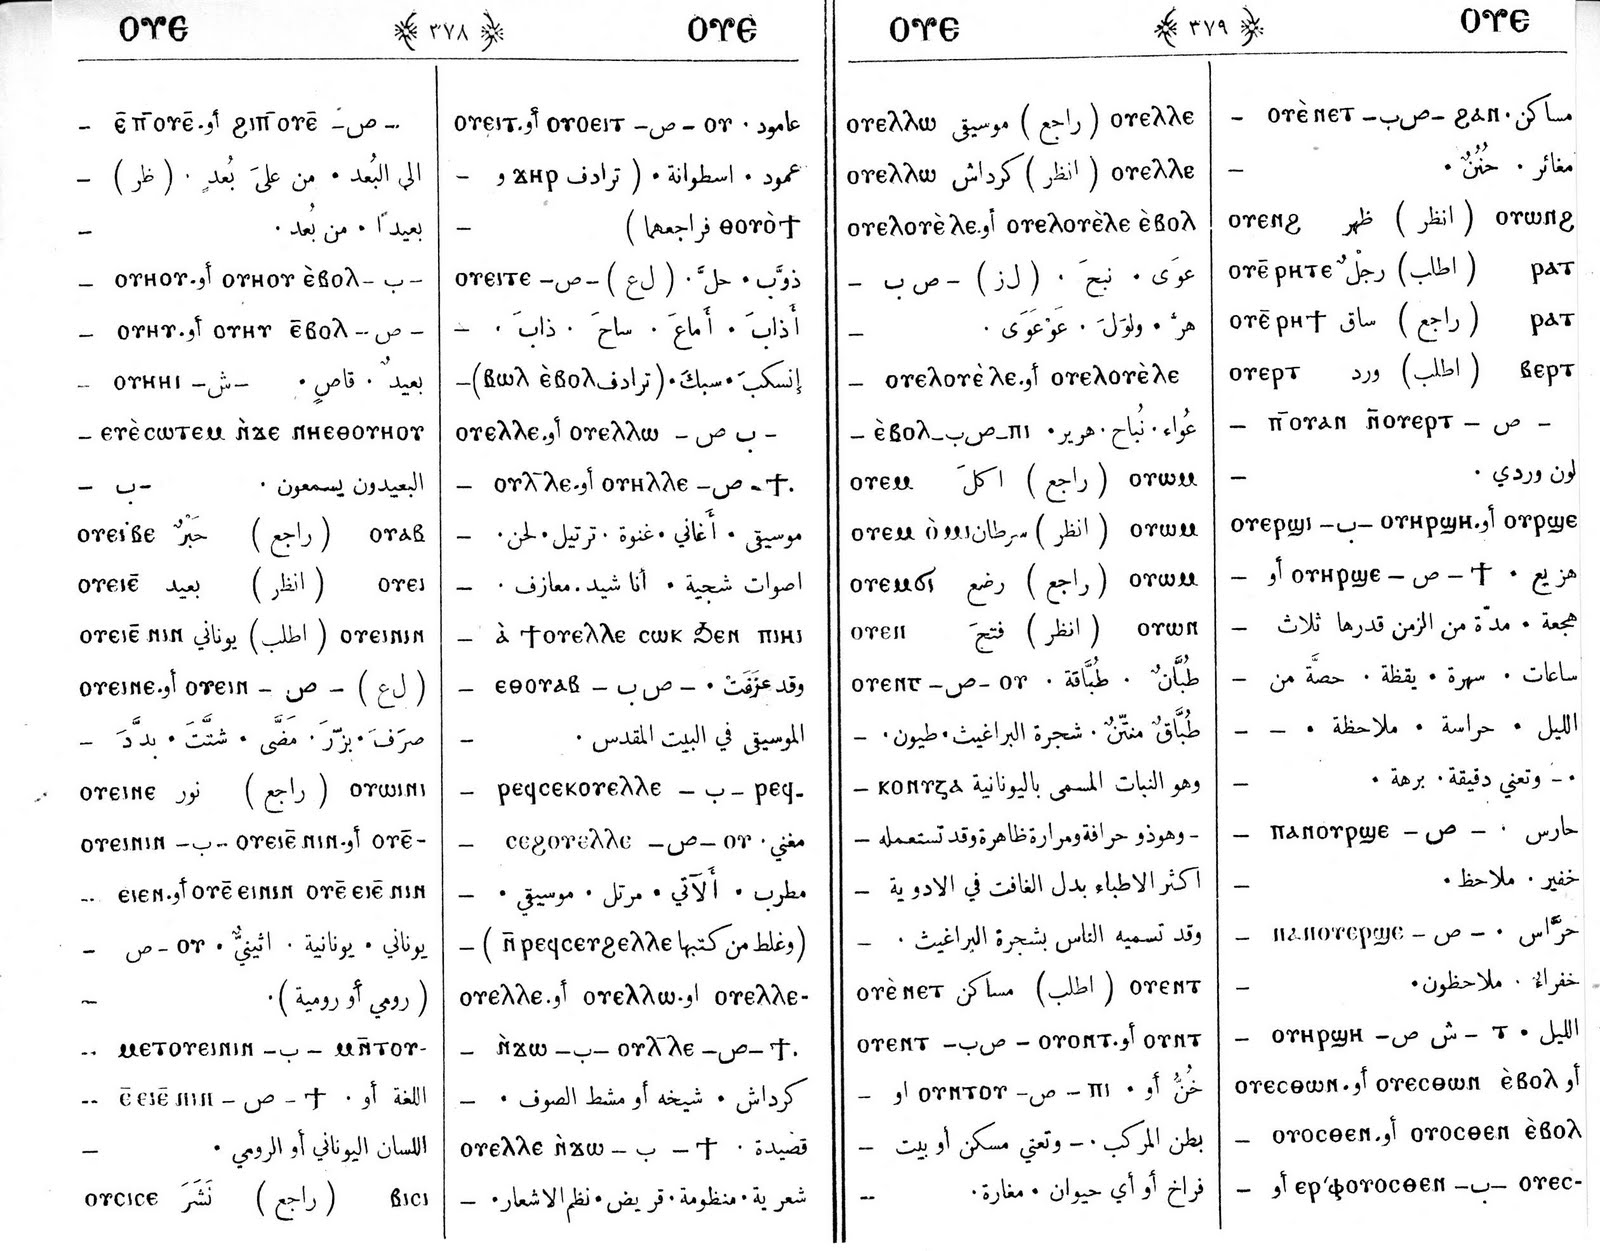 ⲟⲩⲉ ٣٧٨ ⲟⲩⲉ
ⲉ̄ ⲡ̄ⲟⲩⲉ̄ أو. ϩⲓⲡ̄ⲟⲩⲉ̄ – ص –
– الى البُعد • من علىَ بُعدٍ · ( ظر )
– بعيدًا • من بُعد ·
– ⲟⲩⲏⲟⲩ أو. ⲟⲩⲏⲟⲩ ⲉ̀ⲃⲟⲗ – ب –
– ⲟⲩⲏⲩ أو. ⲟⲩⲏⲩ ⲉ̄ⲃⲟⲗ – ص –
– ⲟⲩⲏⲏⲓ – ش – بعيدٌ · قاصٍ •
– ⲉⲩⲉ̀ⲥⲱⲧⲉⲙ ⲛ̀ϫⲉ ⲛⲏⲉⲑⲟⲩⲏⲟⲩ
– ب – البعيدون يسمعون ·
ⲟⲩⲉⲓⲃⲉ ( راجع ) حَبَرٌ ⲟⲩⲁⲃ
ⲟⲩⲉⲓⲉ̄ ( انظر ) بعيد ⲟⲩⲉⲓ
ⲟⲩⲉⲓⲉ̄ ⲛⲓⲛ ( اطلب ) يوناني ⲟⲩⲉⲓⲛⲓⲛ
ⲟⲩⲉⲓⲛⲉ أو. ⲟⲩⲉⲓⲛ – ص – ( ل ع )
– صرَفَ • بزّرَ · مَضَّى • شتَّتَ • بدَّدَ
ⲟⲩⲉⲓⲛⲉ ( راجع ) نور ⲟⲩⲱⲓⲛⲓ
ⲟⲩⲉⲓⲛⲓⲛ – ب – ⲟⲩⲉⲓⲉ̄ ⲛⲓⲛ أو. ⲟⲩⲉ̄-
– ⲉⲓⲉⲛ أو. ⲟⲩⲉ̄ ⲉⲓⲛⲓⲛ ⲟⲩⲉ̄ ⲉⲓⲉ̄ ⲛⲓⲛ
– يوناني • يونانية · اثينيٌّ • ⲟⲩ – ص
– ( رومي أو رومية ) ·
– ⲙⲉⲧⲟⲩⲉⲓⲛⲓⲛ – ب – ⲙⲛ̄ⲧⲟⲩ-
– ⲉ̄ ⲉⲓⲉ̄ ⲛⲓⲛ – ص – ϯ · اللغة أو
– اللسان اليوناني أو الرومي •
ⲟⲩⲥⲓⲥⲉ ( راجع ) نَشَرَ ⲃⲓⲥⲓ
ⲟⲩⲉⲓⲧ أو. ⲟⲩⲟⲉⲓⲧ – ص – ⲟⲩ · عامود
– عمود • اسطوانة • ( ترادف ϫⲏⲣ و
– ⲑⲟⲩⲟ̀ϯ فراجعهما )
ⲟⲩⲉⲓⲧⲉ – ص – ( ل ع ) · ذوَّب • حلَّ
– أَذابَ • أَماعَ · ساحَ · ذابَ ·
– إنسكبَ • سبكَ • ( ترادف ⲃⲱⲗ ⲉ̀ⲃⲟⲗ )
ⲟⲩⲉⲗⲗⲉ أو. ⲟⲩⲉⲗⲗⲱ – ب ص –
– ⲟⲩⲗ̄ⲗⲉ أو. ⲟⲩⲏⲗⲗⲉ – ص – ϯ.
– موسيقى • أَغاني • غنوة · ترتيل • لحن ·
– اصوات شجية • أنا شيد • معازف ·
– ⲁ̀ ϯⲟⲩⲉⲗⲗⲉ ⲥⲱⲕ ϧⲉⲛ ⲡⲓⲏⲓ
– ⲉⲑⲟⲩⲁⲃ – ص ب – • وقد عزَفَتْ
– الموسيقى في البيت المقدس ·
– ⲣⲉϥⲥⲉⲕⲟⲩⲉⲗⲗⲉ – ب – ⲣⲉϥ-
– ⲥⲉϩⲟⲩⲉⲗⲗⲉ – ص – ⲟⲩ · مغني
– مطرب • أَلآتي • مرتل • موسيقي •
– ( وغلط من كتبها ⲛ̄ ⲣⲉϥⲥⲉⲩϩⲉⲗⲗⲉ )
ⲟⲩⲉⲗⲗⲉ أو. ⲟⲩⲉⲗⲗⲱ او. ⲟⲩⲉⲗⲗⲉ-
– ⲛ̀ϫⲱ – ب – ⲟⲩⲗ̄ⲗⲉ – ص – ϯ.
– كرداش • شيخه أو مشط الصوف •
ⲟⲩⲉⲗⲗⲉ ⲛ̀ϫⲱ – ب – ϯ · قصيدة
– شعرية • منظومة • قريض • نظم الاشعار •
ⲟⲩⲉ ٣٧٩ ⲟⲩⲉ
ⲟⲩⲉⲗⲗⲱ موسيقى ( راجع ) ⲟⲩⲉⲗⲗⲉ
ⲟⲩⲉⲗⲗⲱ كرداش ( انظر ) ⲟⲩⲉⲗⲗⲉ
ⲟⲩⲉⲗⲟⲩⲉ̀ⲗⲉ أو. ⲟⲩⲉⲗⲟⲩⲉ̀ⲗⲉ ⲉ̀ⲃⲟⲗ
– ص ب – ( ل ز ) · عوَى • نبحَ
– هرَّ • ولوَلَ · عَوْعَوَى ·
– ⲟⲩⲉⲗⲟⲩⲉ̀ⲗⲉ أو. ⲟⲩⲉⲗⲟⲩⲉ̀ⲗⲉ
– ⲉ̀ⲃⲟⲗ – ص ب – ⲡⲓ • عُواء · نُباح · هرير
ⲟⲩⲉⲙ اكلَ ( راجع ) ⲟⲩⲱⲙ
ⲟⲩⲉⲙ سرطان ( انظر ) ⲟⲩⲱⲙ
ⲟⲩⲉⲙϭⲓ رضع ( راجع ) ⲟⲩⲱⲙ
ⲟⲩⲉⲛ فتحَ ( انظر ) ⲟⲩⲱⲛ
ⲟⲩⲉⲛⲧ – ص – ⲟⲩ · طُبَّانٌ · طُبَّاقة
– طُبَّاقٌ منتّنٌ · شجرة البراغيث • طيون ·
– وهو النبات المسمى باليونانية ⲕⲟⲛⲩⲍⲁ
– وهوذو حرافة ومرارة ظاهرة وقد تستعمله
– اكثر الاطباء بدل الغافت في الادوية
– وقد تسميه الناس بشجرة البراغيث ·
ⲟⲩⲉ̀ⲛⲉⲧ مساكن ( اطلب ) ⲟⲩⲉⲛⲧ
ⲟⲩⲉⲛⲧ – ص ب – ⲟⲩⲟⲛⲧ أو. ⲟⲩⲛⲧ
– او ⲟⲩⲛⲧⲟⲩ – ص – ⲡⲓ • خُنٌّ أو
– بطن المركب · – وتعني مسكن أو بيت
– فراخ أو أي حيوان • مغارة ·
– ⲟⲩⲉ̀ⲛⲉⲧ – ص ب – ϩⲁⲛ · مساكن
– مغائر · خُنُنٌ •
ⲟⲩⲉⲛϩ ظهر ( انظر ) ⲟⲩⲱⲛϩ
ⲟⲩⲉ̄ⲣⲏⲧⲉ رجلٌ ( اطلب ) ⲣⲁⲧ
ⲟⲩⲉ̄ⲣⲏϯ ساق ( راجع ) ⲣⲁⲧ
ⲟⲩⲉⲣⲧ ورد ( اطلب ) ⲃⲉⲣⲧ
– ⲡ̄ⲟⲩⲁⲛ ⲛ̄ⲟⲩⲉⲣⲧ – ص –
– لون وردي ·
ⲟⲩⲉⲣϣⲓ – ب – ⲟⲩⲏⲣϣⲏ أو. ⲟⲩⲣϣⲉ
– أو ⲟⲩⲏⲣϣⲉ – ص – ϯ • هزيع
– هجعة • مدّة من الزمن قدرها ثلاث
– ساعات · سهرة • يقظة · حصَّة من
– الليل • حراسة • ملاحظة •
– وتعني دقيقة · برهة •
– ⲡⲁⲛⲟⲩⲣϣⲉ – ص – · حارس
– خفير · ملاحظ •
– ⲡⲁⲛⲟⲩⲉⲣϣⲉ – ص – • حرَّاس
– خفراءُ · ملاحظون •
– ⲟⲩⲏⲣϣⲏ – ش ص – ⲧ • الليل
ⲟⲩⲉⲥⲑⲱⲛ أو. ⲟⲩⲉⲥⲑⲱⲛ ⲉ̀ⲃⲟⲗ أو
– ⲟⲩⲟⲥⲑⲉⲛ أو. ⲟⲩⲟⲥⲑⲉⲛ ⲉ̀ⲃⲟⲗ
– أو ⲉⲣ'ⲫⲟⲩⲟⲥⲑⲉⲛ – ب – ⲟⲩⲉⲥ-